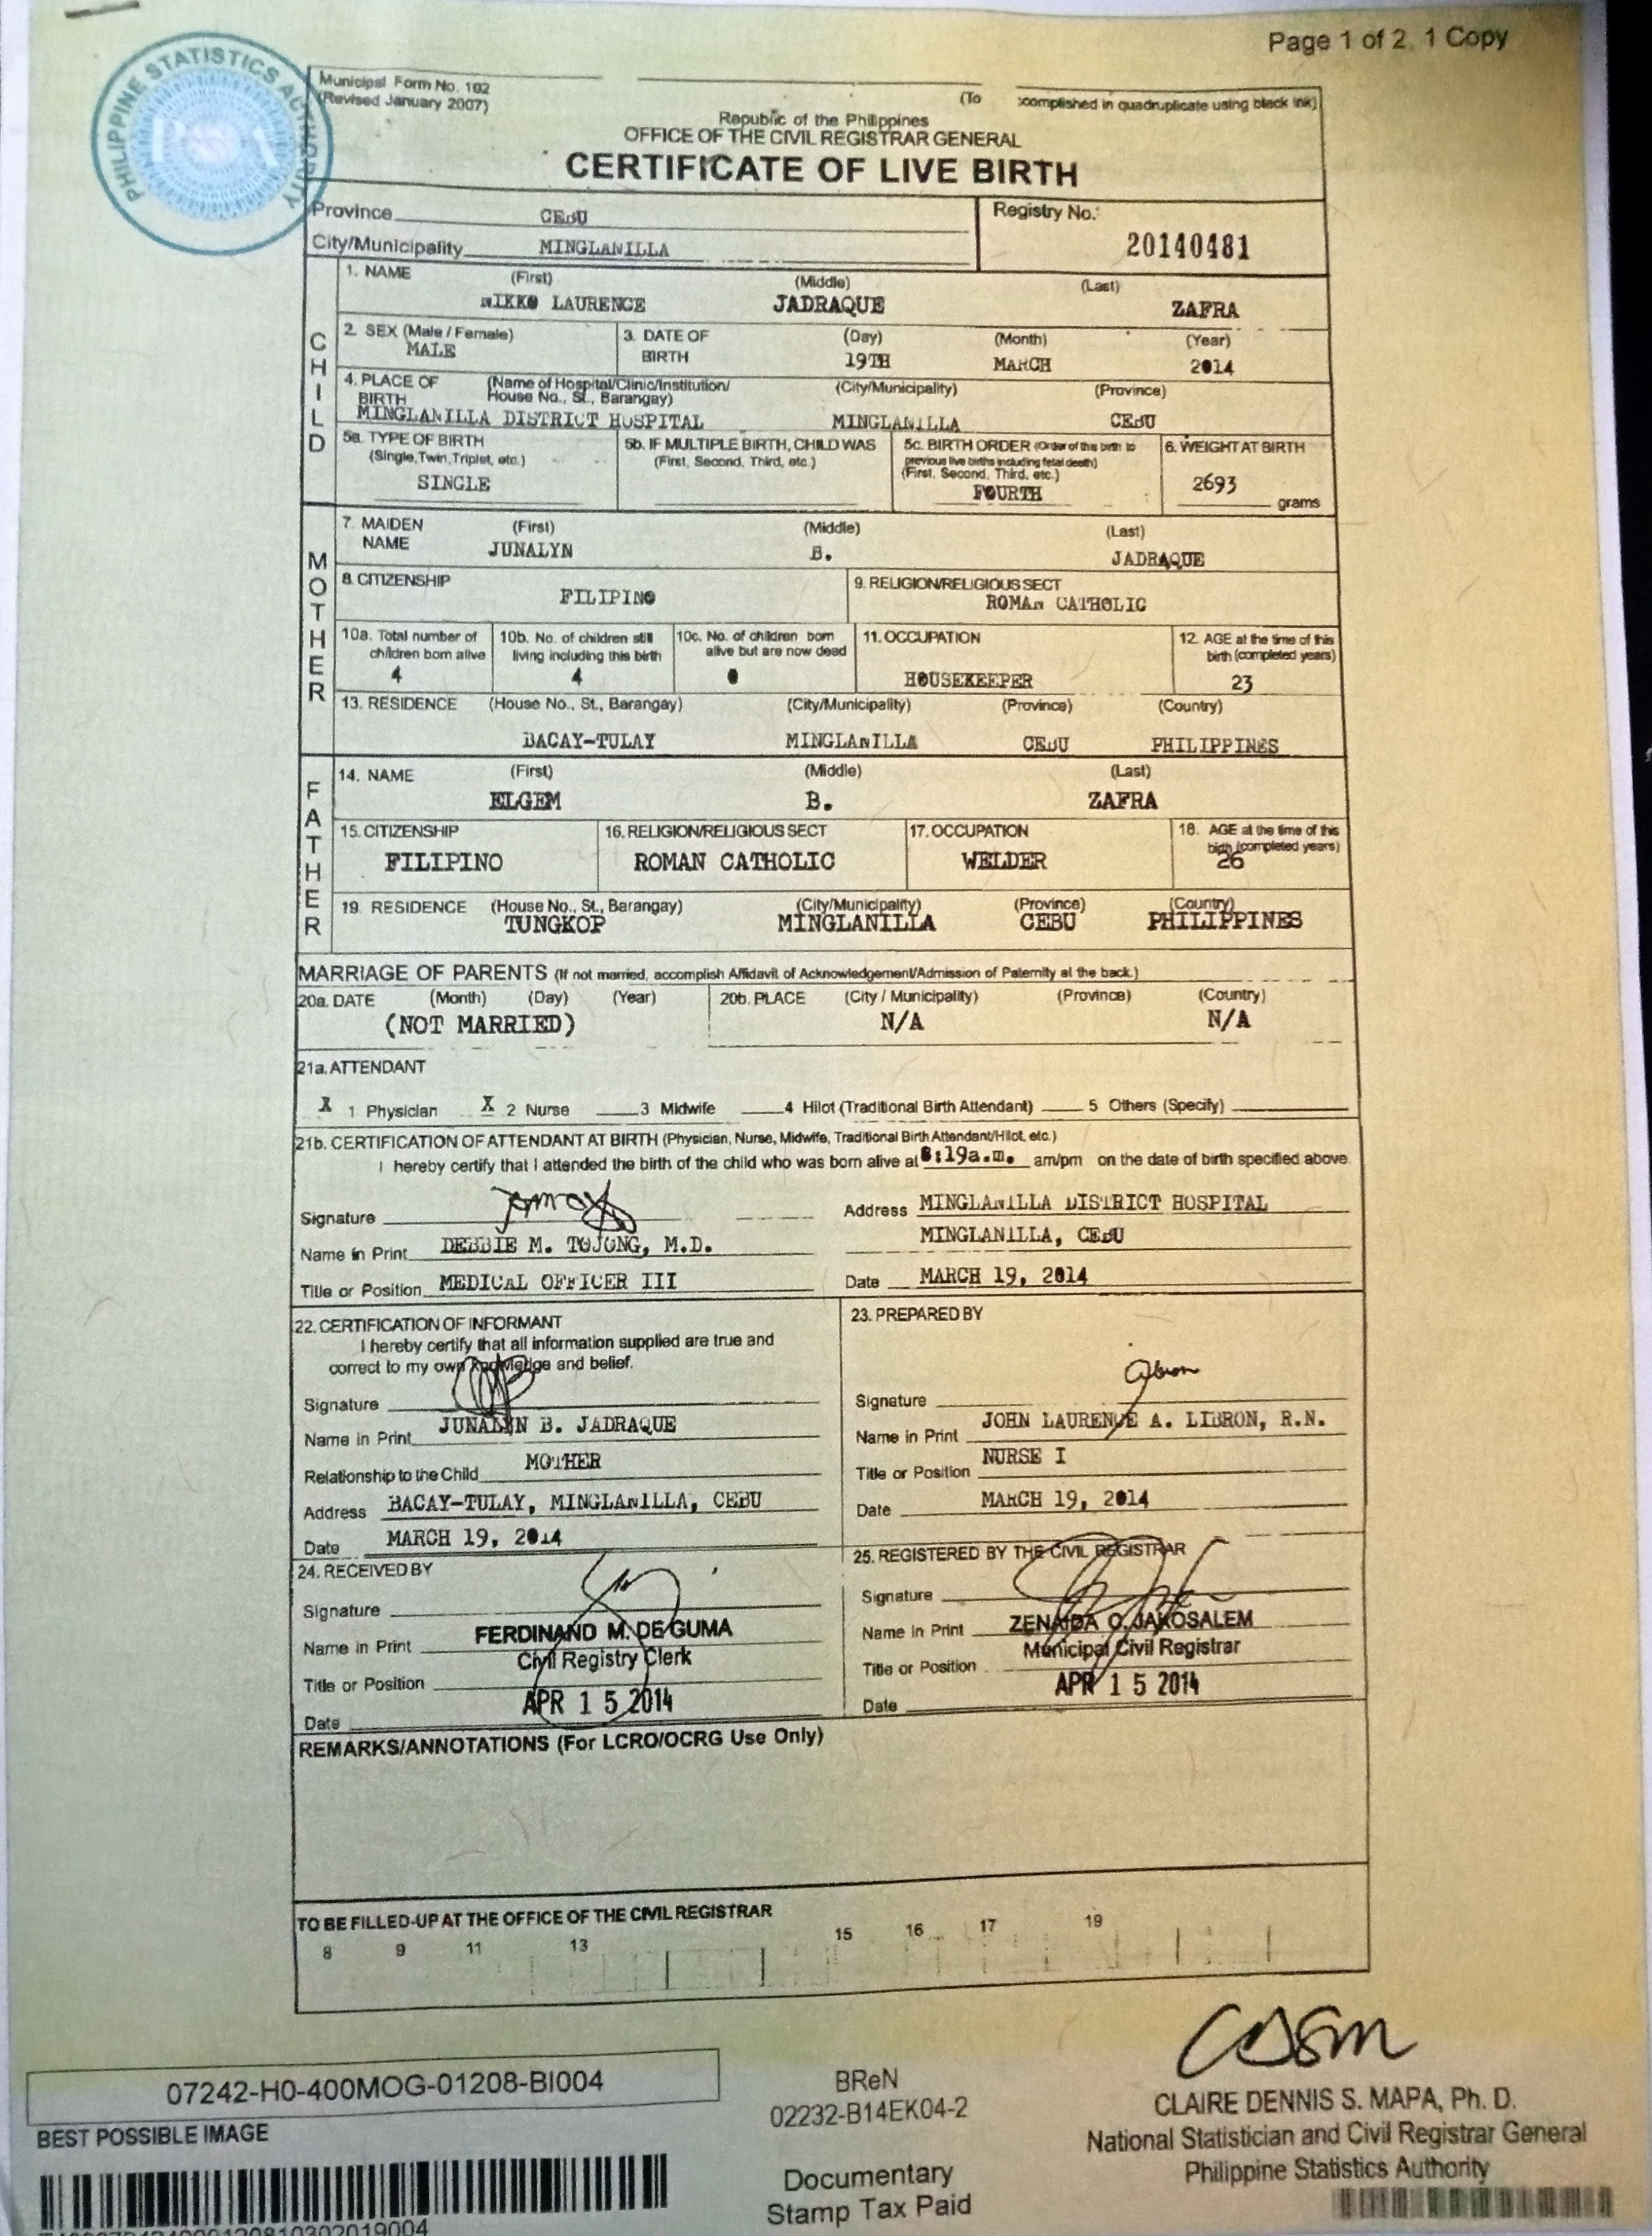 Page 1 of 2, 1 Copy
PHILIPPINE STATISTICS AUTHORITY
PSA
Municipal Form No. 102
(Revised January 2007)
(To complished in quadruplicate using black ink)
Republic of the Philippines
OFFICE OF THE CIVIL REGISTRAR GENERAL
CERTIFICATE OF LIVE BIRTH
Province CEBU
City/Municipality MINGLANILLA
Registry No.:
20140481
CHILD
1. NAME (First) (Middle) (Last)
NIKKO LAURENCE JADRAQUE ZAFRA
2. SEX (Male / Female) 3. DATE OF BIRTH (Day) (Month) (Year)
MALE 19TH MARCH 2014
4. PLACE OF BIRTH (Name of Hospital/Clinic/Institution/ House No., St., Barangay) (City/Municipality) (Province)
MINGLANILLA DISTRICT HOSPITAL MINGLANILLA CEBU
5a. TYPE OF BIRTH (Single, Twin, Triplet, etc.) 5b. IF MULTIPLE BIRTH, CHILD WAS (First, Second, Third, etc.) 5c. BIRTH ORDER (Order of this birth to previous live births including fetal death) (First, Second, Third, etc.) 6. WEIGHT AT BIRTH
SINGLE FOURTH 2693 grams
MOTHER
7. MAIDEN NAME (First) (Middle) (Last)
JUNALYN B. JADRAQUE
8. CITIZENSHIP 9. RELIGION/RELIGIOUS SECT
FILIPINO ROMAN CATHOLIC
10a. Total number of children born alive 10b. No. of children still living including this birth 10c. No. of children born alive but are now dead 11. OCCUPATION 12. AGE at the time of this birth (completed years)
4 4 0 HOUSEKEEPER 23
13. RESIDENCE (House No., St., Barangay) (City/Municipality) (Province) (Country)
BACAY-TULAY MINGLANILLA CEBU PHILIPPINES
FATHER
14. NAME (First) (Middle) (Last)
ELGEM B. ZAFRA
15. CITIZENSHIP 16. RELIGION/RELIGIOUS SECT 17. OCCUPATION 18. AGE at the time of this birth (completed years)
FILIPINO ROMAN CATHOLIC WELDER 26
19. RESIDENCE (House No., St., Barangay) (City/Municipality) (Province) (Country)
TUNGKOP MINGLANILLA CEBU PHILIPPINES
MARRIAGE OF PARENTS (If not married, accomplish Affidavit of Acknowledgement/Admission of Paternity at the back.)
20a. DATE (Month) (Day) (Year) 20b. PLACE (City / Municipality) (Province) (Country)
(NOT MARRIED) N/A N/A
21a. ATTENDANT
X 1 Physician X 2 Nurse 3 Midwife 4 Hilot (Traditional Birth Attendant) 5 Others (Specify)
21b. CERTIFICATION OF ATTENDANT AT BIRTH (Physician, Nurse, Midwife, Traditional Birth Attendant/Hilot, etc.)
I hereby certify that I attended the birth of the child who was born alive at :19a.m. am/pm on the date of birth specified above.
Signature Address MINGLANILLA DISTRICT HOSPITAL
Name in Print DEBBIE M. TOJONG, M.D. MINGLANILLA, CEBU
Title or Position MEDICAL OFFICER III Date MARCH 19, 2014
22. CERTIFICATION OF INFORMANT
I hereby certify that all information supplied are true and
correct to my own knowledge and belief.
Signature
Name in Print JUNALYN B. JADRAQUE
Relationship to the Child MOTHER
Address BACAY-TULAY, MINGLANILLA, CEBU
Date MARCH 19, 2014
23. PREPARED BY
Signature
Name in Print JOHN LAURENCE A. LIBRON, R.N.
Title or Position NURSE I
Date MARCH 19, 2014
24. RECEIVED BY
Signature
Name in Print FERDINAND M. DE GUMA
Title or Position Civil Registry Clerk
Date APR 15 2014
25. REGISTERED BY THE CIVIL REGISTRAR
Signature
Name in Print ZENAIDA O. JAKOSALEM
Title or Position Municipal Civil Registrar
Date APR 15 2014
REMARKS/ANNOTATIONS (For LCRO/OCRG Use Only)
TO BE FILLED-UP AT THE OFFICE OF THE CIVIL REGISTRAR
8 9 11 13 15 16 17 19
07242-H0-400MOG-01208-BI004
BEST POSSIBLE IMAGE
BReN
02232-B14EK04-2
Documentary
Stamp Tax Paid
CLAIRE DENNIS S. MAPA, Ph. D.
National Statistician and Civil Registrar General
Philippine Statistics Authority